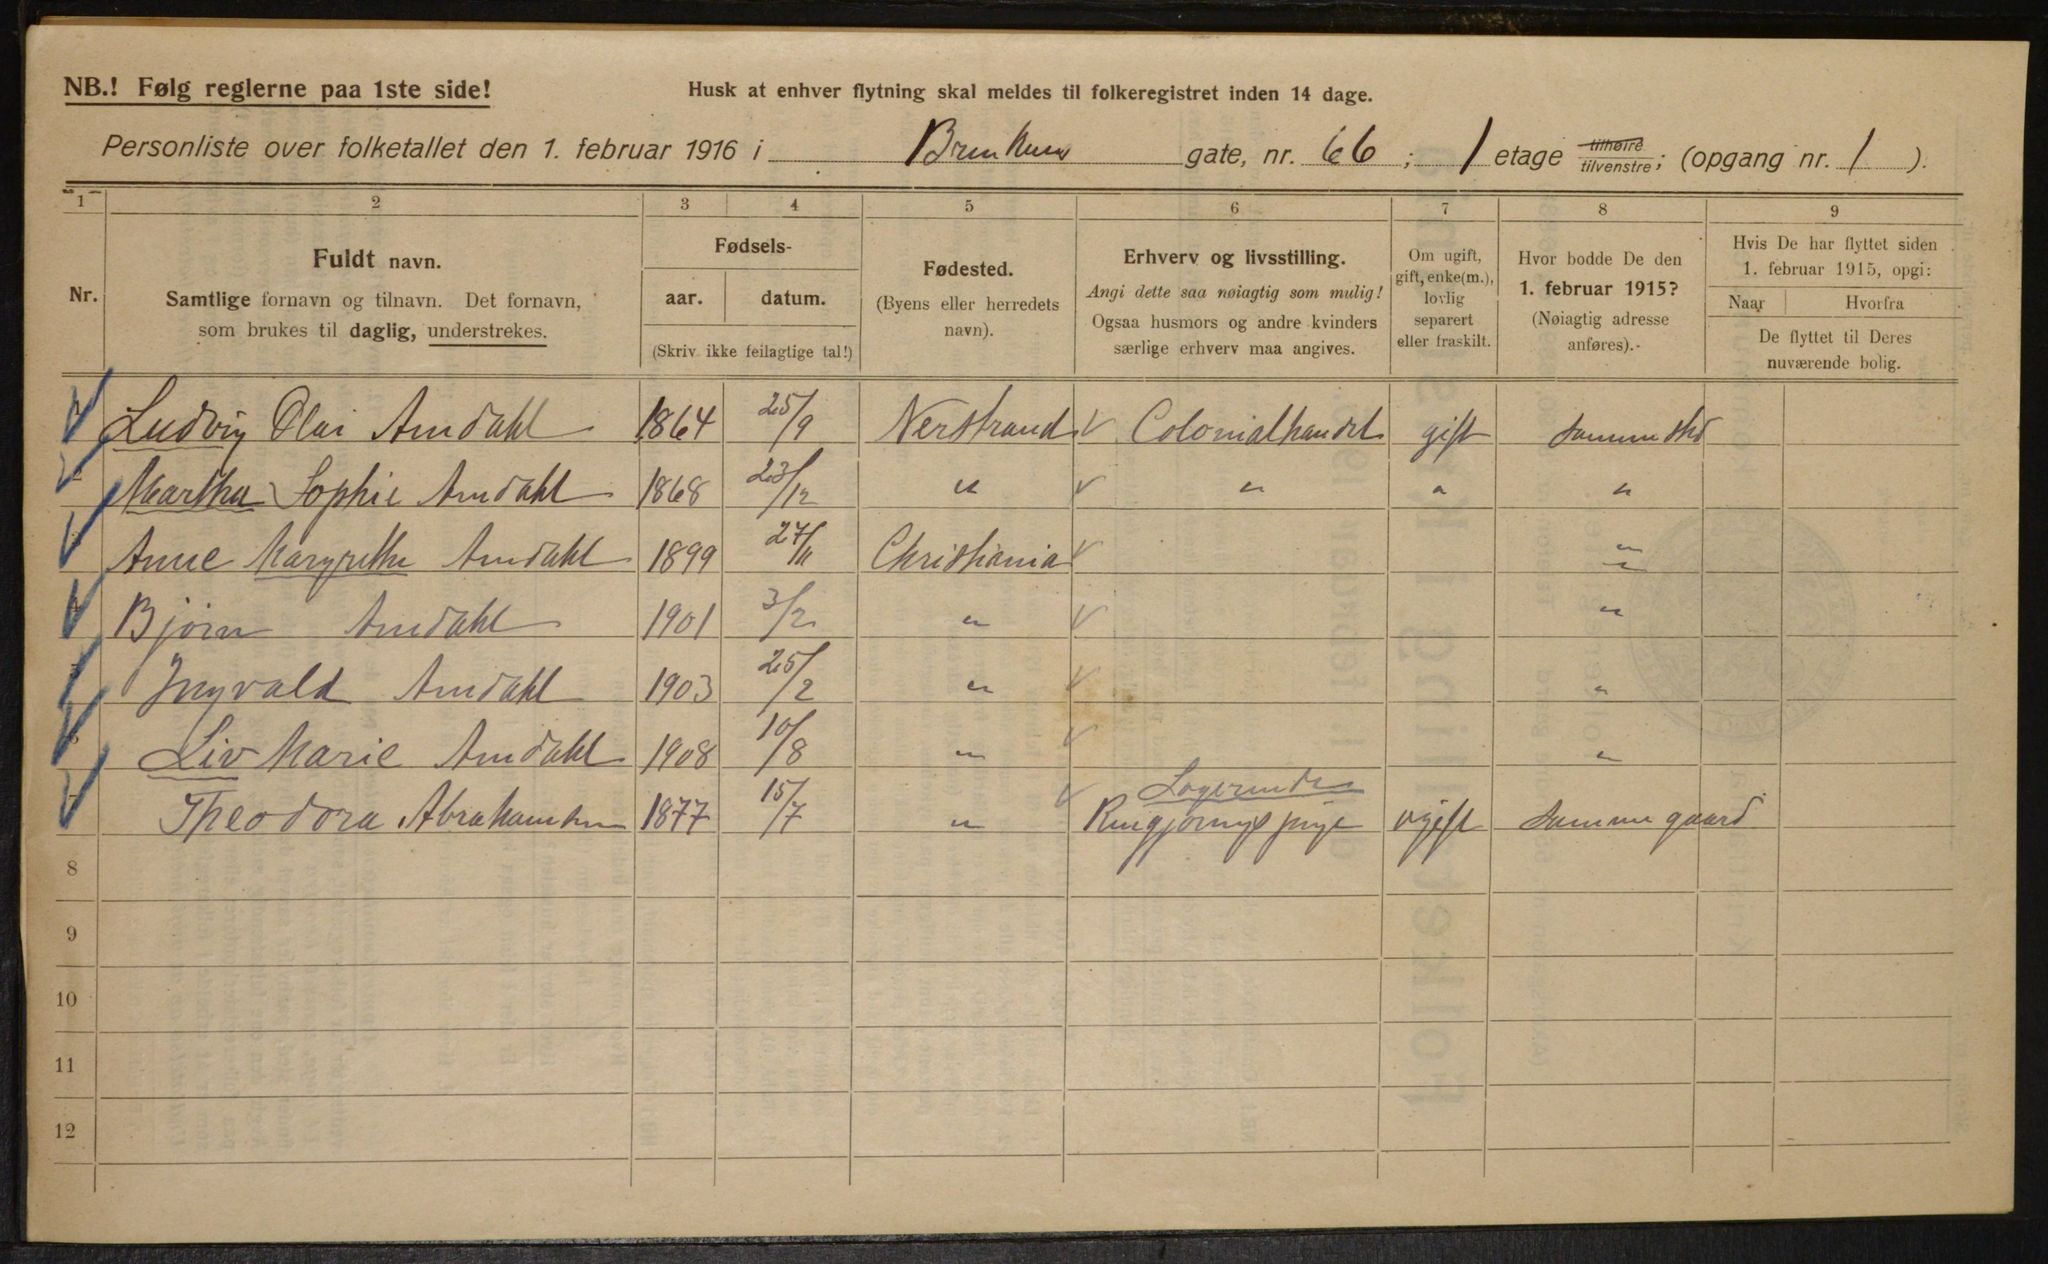 NB.! Følg reglerne paa 1ste side!
Husk at enhver flytning skal meldes til folkeregistret inden 14 dage.
Personliste over folketallet den 1. februar 1916 i gate, nr. 66 ; 1 etage tilhøire tilvenstre; (opgang nr. 1 ).
1 2 3 4 5 6 7 8 9
Nr.
Fuldt navn.
Samtlige fornavn og tilnavn. Det fornavn,
som brukes til daglig, understrekes.
Fødsels-
aar. datum.
(Skriv ikke feilagtige tal!)
Fødested.
(Byens eller herredets
navn).
Erhverv og livsstilling.
Angi dette saa nøiagtig som mulig!
Ogsaa husmors og andre kvinders
særlige erhverv maa angives.
Om ugift,
gift, enke(m.),
lovlig
separert
eller fraskilt.
Hvor bodde De den
1. februar 1915?
(Nøiagtig adresse
anføres).
Hvis De har flyttet siden
1. februar 1915, opgi:
Naar Hvorfra
De flyttet til Deres
nuværende bolig.
1 Ludvig Olai Amdahl 1864 25/9 Nerstrand Colonialhandel gift samme sted
2 Martha Sophie Amdahl 1868 23/12 " " " "
3 Anne Margrethe Amdahl 1899 27/11 Christiania "
4 Bjørn Amdahl 1901 3/2 " "
5 Ingvald Amdahl 1903 25/2 " "
6 Liv Marie Amdahl 1908 10/8 " "
Logerende
7 Theodora Abrahamsen 1877 15/7 " ugift samme gaard
8
9
10
11
12